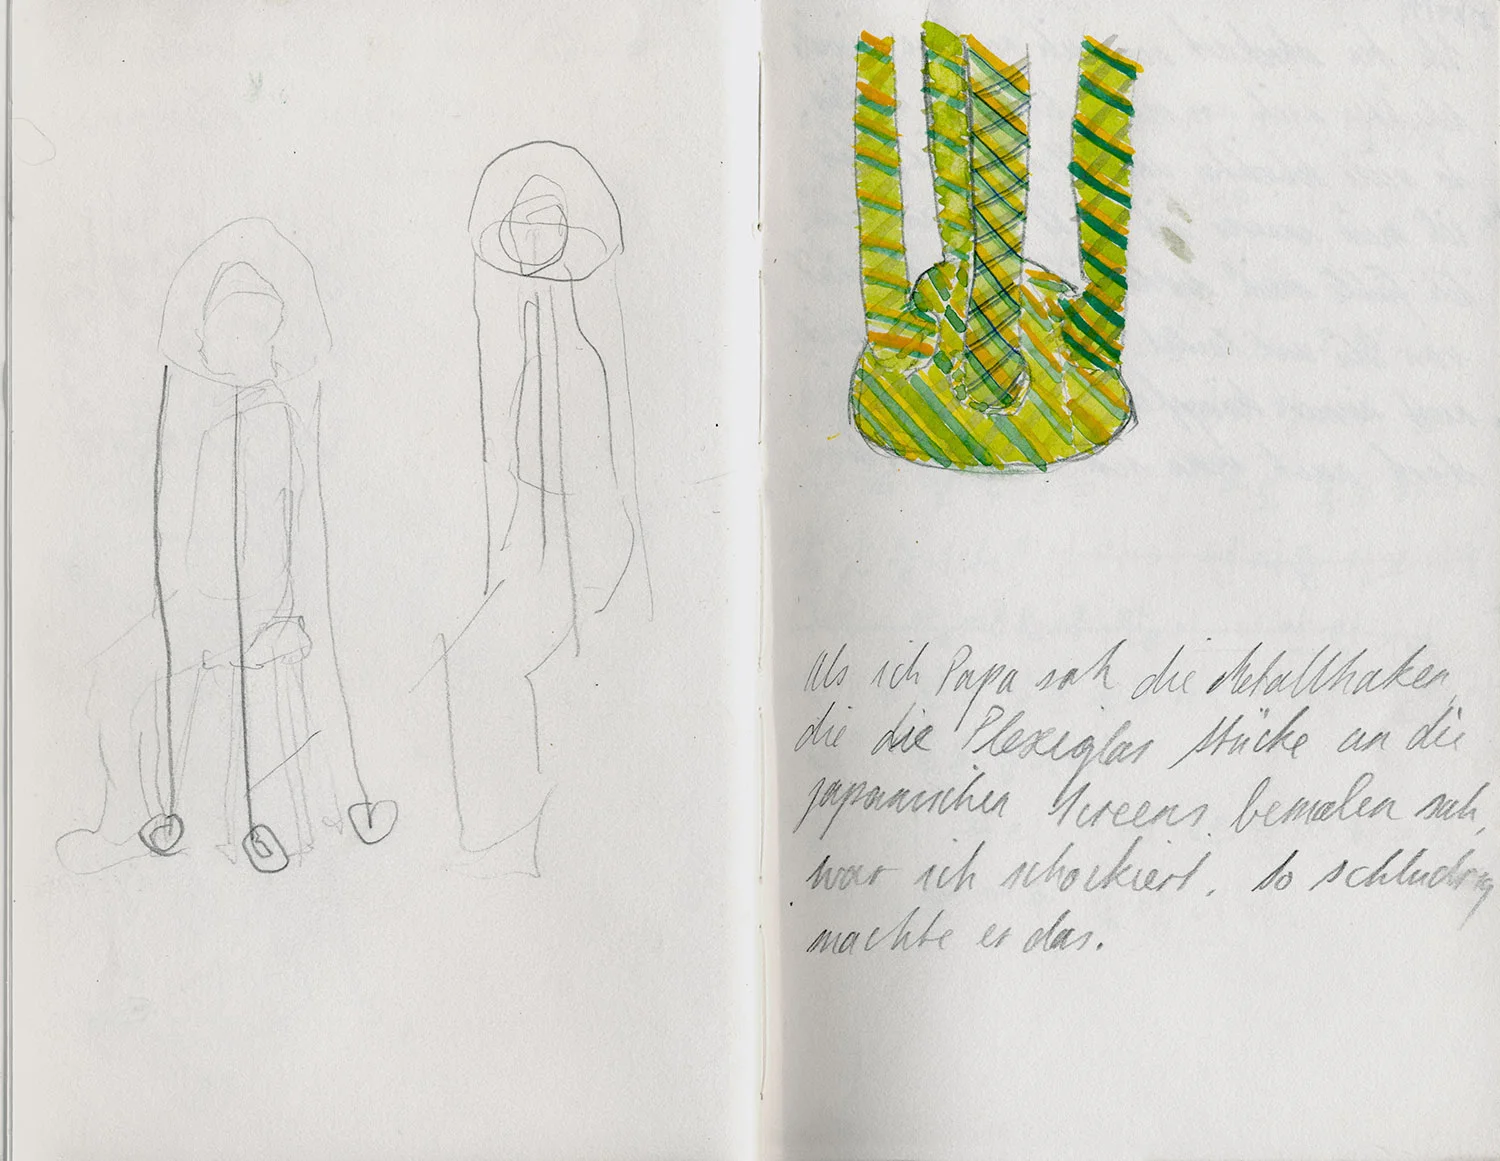 Als ich Papa sah die Metallhaken,
die die Plexiglas stücke an die
japanischen Screens bemalen sah,
war ich schockiert. So schludrig
machte er das.